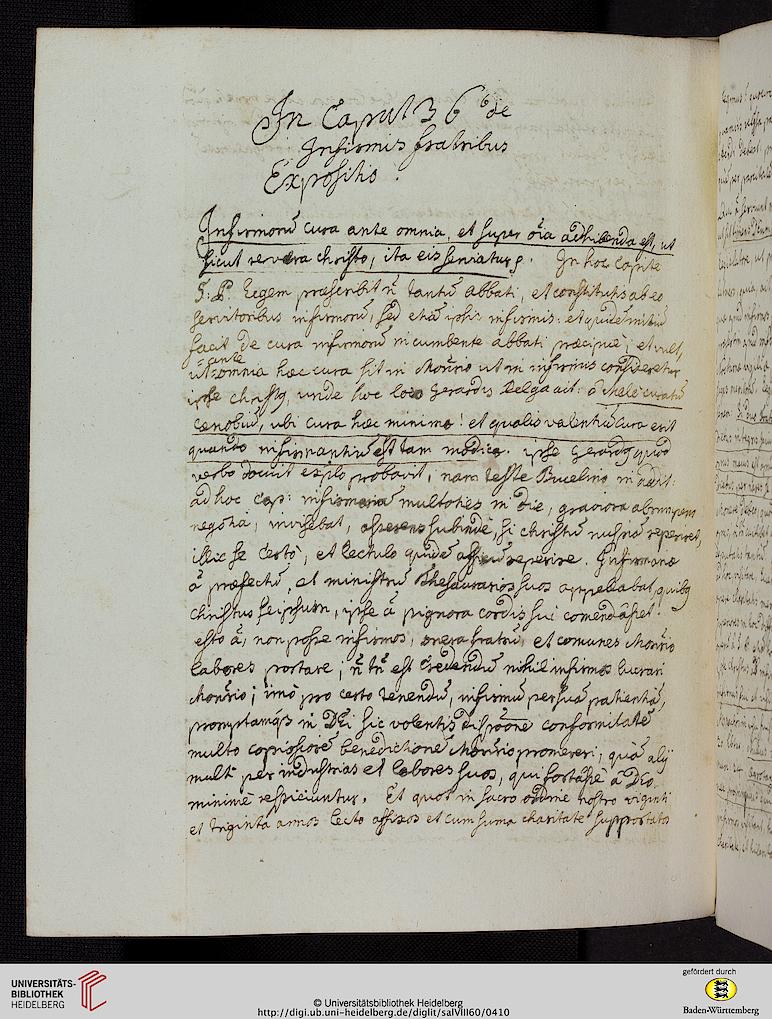 In Caput 36 de
Infirmis fratribus
Expositio.
Infirmorũ cura ante omnia, et super oĩa adhibenda est, ut
sicut revera Christo, ita eis serviatur. In hoc capite
S: P. legem præscribit ñ tantũ abbati, et constitutis ab eo
servitoribus infirmorũ, sed etiã ipsis infirmis: et quidẽ initiũ
facit de cura infirmorũ incumbente abbati præcipuè, et vult,
ut ante omnia hæc cura sit in Monrio ut in infirmis consideretur
ipse Christq, unde hoc loco Gerardq Belga ait: ô Malè curatũ
cœnobiũ, ubi cura hæc minima! et qualis valentiũ cura erit
quando infirmantiũ est tam modica. ipse Gerardq quod
verbo docuit explo probavit, nam teste Bucelino in
ad hoc cap: infirmariã multoties in die, graviora abrumpens
negotia, invisebat, asserens subinde, si Christũ nusquã reperiret,
illic se certò, et lectulo quidẽ affixũ reperire. Infirmariæ
ã præfectũ, et ministrũ Thesaurarios suos appellabat, quibq
Christus seipsum, ipse ã pignora cordis sui comendâsset.
esto ã, non posse infirmos, onera fratrũ, et comunes Monrio
labores portare, ñ tñ est credendũ nihil infirmos lucrari
Monrio; imò pro certo tenendũ, infirmũ per suã patientiã,
promptamqs in DEi sic volentis disp̃one conformitatẽ
multo copiosiorẽ benedictionẽ Monrio promereri, quã alij
multi per industrias et labores suos, qui fortassè à Dẽo
minimè respiciuntur. Et quot in sacro ordine nostro viginti
et triginta annos lecto affixos et cum suma charitate supportatos
UNIVERSITÄTS-
BIBLIOTHEK
HEIDELBERG
© Universitätsbibliothek Heidelberg
http://digi.ub.uni-heidelberg.de/diglit/salVIII60/0410
gefördert durch
Baden-Württemberg